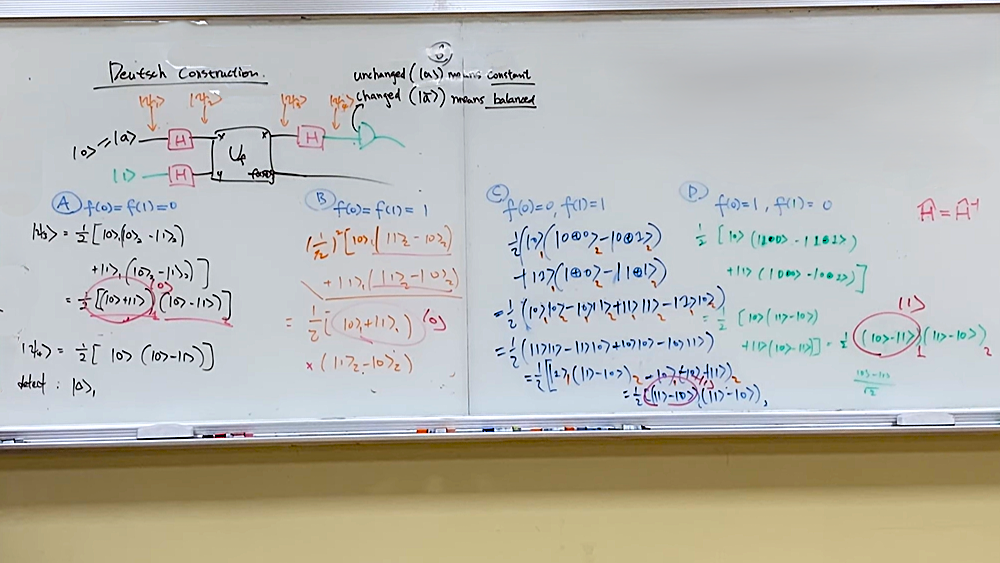 Deutsch Construction.
unchanged (|a⟩) means constant
changed (|ā⟩) means balanced
|ψ₁⟩ |ψ₂⟩ |ψ₃⟩ |ψ₄⟩
|0⟩ = |a⟩ H x U_f x H
|1⟩ H y
A f(0)=f(1)=0
|ψ₃⟩ = ½[|0⟩₁(|0⟩₂-|1⟩₂)
+|1⟩₁(|0⟩₂-|1⟩₂)]
|0⟩
= ½[(|0⟩+|1⟩)₁(|0⟩-|1⟩)₂]
|ψ₄⟩ = ½[|0⟩(|0⟩-|1⟩)]
detect: |0⟩₁
B f(0)=f(1)=1
(1/√2)²[|0⟩₁(|1⟩₂-|0⟩₂)
+|1⟩₁(|1⟩₂-|0⟩₂)
= ½[|0⟩₁+|1⟩₁) |0⟩
×(|1⟩₂-|0⟩₂)
C f(0)=0, f(1)=1
½(|0⟩₁(|0⊕0⟩₂-|0⊕1⟩₂)
+|1⟩₁(|1⊕0⟩-|1⊕1⟩)₂
=½(|0⟩₁|0⟩₂-|0⟩₁|1⟩₂+|1⟩₁|1⟩₂-|1⟩₁|0⟩₂)
=½(|1⟩|1⟩-|1⟩|0⟩+|0⟩|0⟩-|0⟩|1⟩)
=½[|1⟩₁(|1⟩-|0⟩)₂-|0⟩₁(-|0⟩+|1⟩)₂
|1⟩
=½[(|1⟩-|0⟩)₁(|1⟩-|0⟩)₂
D f(0)=1, f(1)=0
½[|0⟩(|1⊕0⟩-|1⊕1⟩)
+|1⟩(|0⊕0⟩-|0⊕1⟩)]
=½[|0⟩(|1⟩-|0⟩)
+|1⟩(|0⟩-|1⟩)]
|1⟩
=½(|0⟩-|1⟩)₁(|1⟩-|0⟩)₂
|0⟩-|1⟩/√2
Ĥ=Ĥ⁻¹